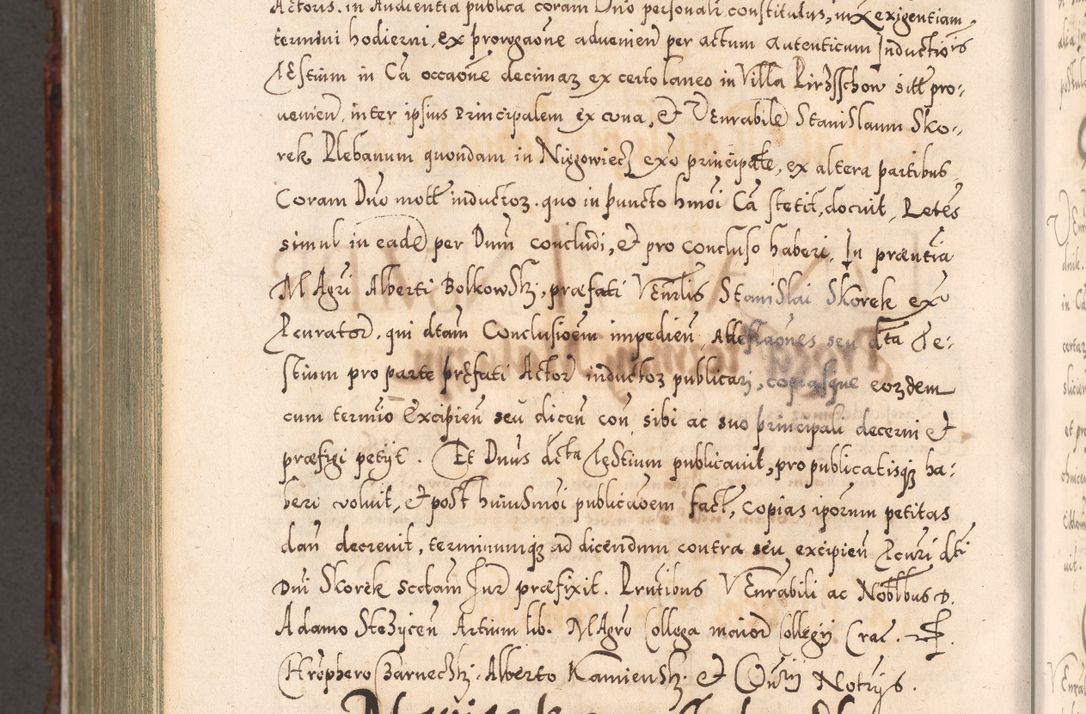 Actoris. in Audientia publica coram Dno personalr constitutus, iux exigentiam
termini hodierni, ex prorogaone advenien per actum autenticum Inductiois
Testium in Ca occaone decimaz ex certo laneo in Villa Pirzsschow sitt pro-
uenien. inter ipsius principalem ex vna, et Venrabile Stanislaum Sko-
rek Plebanum quondam in Niegowiecz exo principale, ex altera partibus
Coram Dno mott inductoz. quo in puncto hmoi Ca stetit, docuit, Petes
simul in eade per Dum concludi, et pro concluso haberi. In præntia
MAgri Alberti Bolkowski, præfati Venrlis Stanislai Skorek exo
Pcurator. qui dtam Conclusioem impedien, Attestaones seu dta Te-
stium pro parte præfati Actor inductoz publicari, copiasque eozdem
cum termio Excipien seu dicen con sibi ac suo principali decerni et
præfigi petijt. Et Dnus dcta Testium publicauit, pro publicatisqz ha-
beri voluit, et post huiusmoi publicaoem fact, copias iporum petitas
dan decreuit, terminumqz ad dicendum contra seu excipien Pcuri dti
Dni Skorek scdam Jur præfixit. Pruntibus Venrabili ac Nobllbus D.
Adamo Stezycen Artium lib. MAgro Collega maior Collegij Crac.
Chrophero Czarnecki, Alberto Kamienski. et Curij Notrijs.